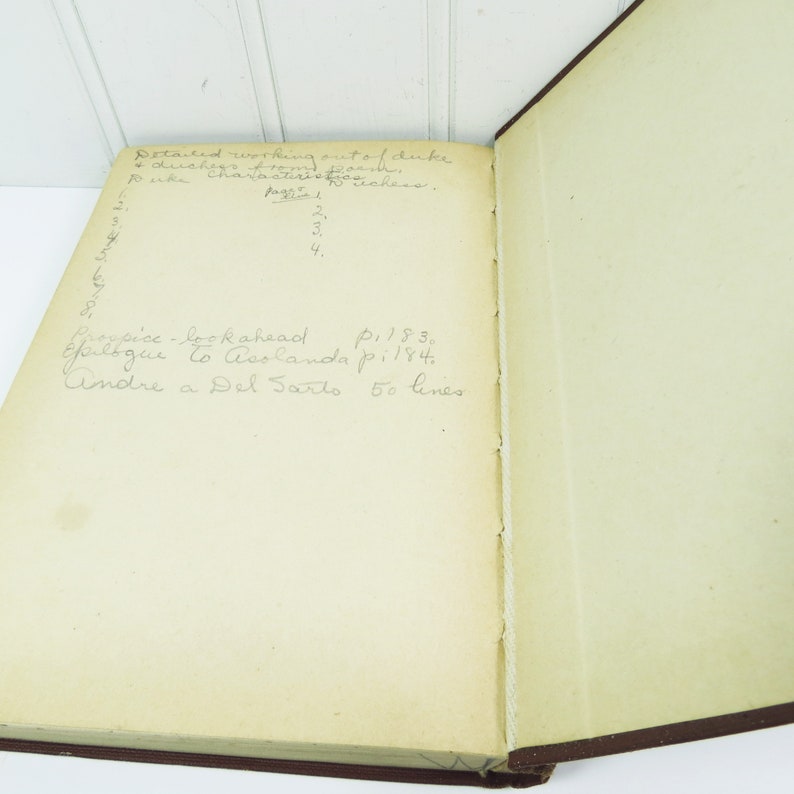 Detailed working out of duke
& duchess from poem.
Duke Characteristics Duchess.
1. page & line 1.
2. 2.
3. 3.
4. 4.
5.
6.
7.
8.
Prospice - look ahead p. 183.
Epilogue to Asolanda p. 184.
Andre a Del Sarto 50 lines